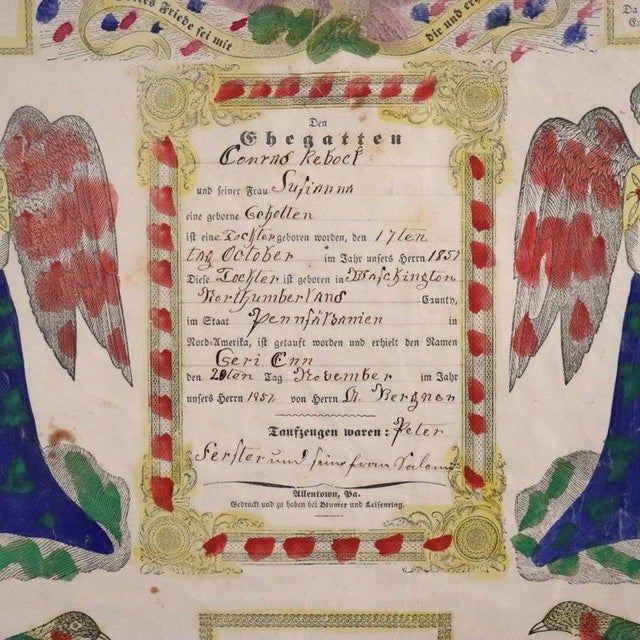 Friede sei mit
dir und
Da
Den
Ehegatten
Conrad Rebock
und seiner Frau Susianna
eine geborne Scholten
ist eine Tochter geboren worden, den 17ten
tag October im Jahr unsers Herrn 1851
Diese Tochter ist geboren in Waschington
Northumberland County,
im Staat Pennsilvanien in
Nord-Amerika, ist getauft worden und erhielt den Namen
Geri Enn
den 20ten Tag November im Jahr
unsers Herrn 1851 von Herrn A. Bergner
Taufzeugen waren: Peter
Ferster und seine frau Salome
Allentown, Pa.
Gedruckt und zu haben bei Blumer und Leisenring.